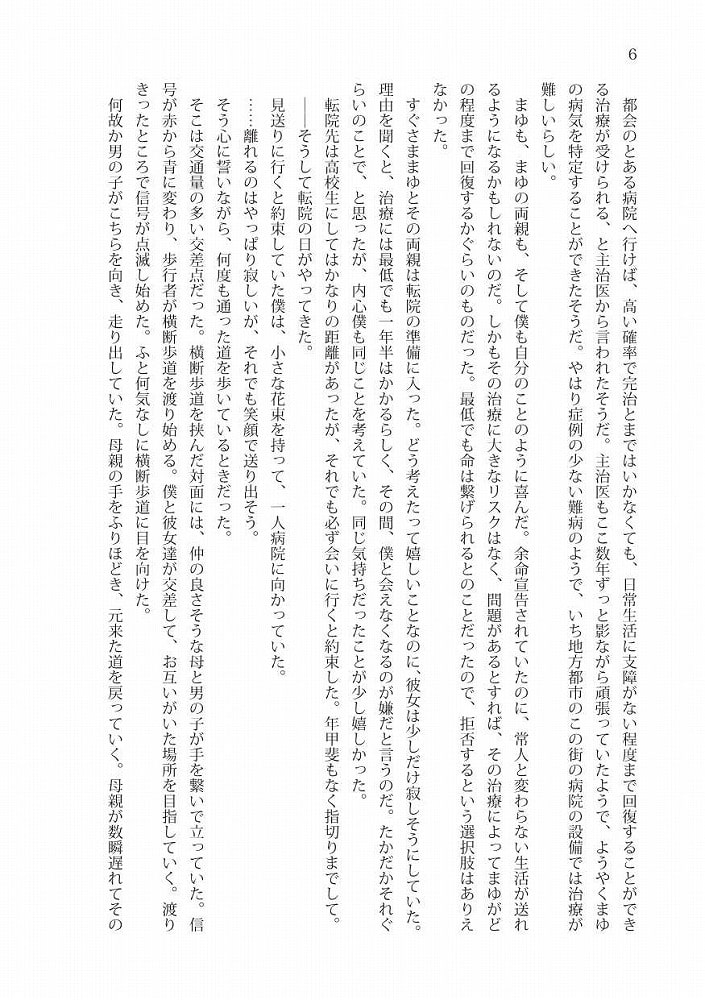 6
　都会のとある病院へ行けば、高い確率で完治とまではいかなくても、日常生活に支障がない程度まで回復することができ
る治療が受けられる、と主治医から言われたそうだ。主治医もここ数年ずっと影ながら頑張っていたようで、ようやくまゆ
の病気を特定することができたそうだ。やはり症例の少ない難病のようで、いち地方都市のこの街の病院の設備では治療が
難しいらしい。
　まゆも、まゆの両親も、そして僕も自分のことのように喜んだ。余命宣告されていたのに、常人と変わらない生活が送れ
るようになるかもしれないのだ。しかもその治療に大きなリスクはなく、問題があるとすれば、その治療によってまゆがど
の程度まで回復するかぐらいのものだった。最低でも命は繋げられるとのことだったので、拒否するという選択肢はありえ
なかった。
　すぐさままゆとその両親は転院の準備に入った。どう考えたって嬉しいことなのに、彼女は少しだけ寂しそうにしていた。
理由を聞くと、治療には最低でも一年半はかかるらしく、その間、僕と会えなくなるのが嫌だと言うのだ。たかだかそれぐ
らいのことで、と思ったが、内心僕も同じことを考えていた。同じ気持ちだったことが少し嬉しかった。
　転院先は高校生にしてはかなりの距離があったが、それでも必ず会いに行くと約束した。年甲斐もなく指切りまでして。
　――そうして転院の日がやってきた。
　見送りに行くと約束していた僕は、小さな花束を持って、一人病院に向かっていた。
　……離れるのはやっぱり寂しいが、それでも笑顔で送り出そう。
　そう心に誓いながら、何度も通った道を歩いているときだった。
　そこは交通量の多い交差点だった。横断歩道を挟んだ対面には、仲の良さそうな母と男の子が手を繋いで立っていた。信
号が赤から青に変わり、歩行者が横断歩道を渡り始める。僕と彼女達が交差して、お互いがいた場所を目指していく。渡り
きったところで信号が点滅し始めた。ふと何気なしに横断歩道に目を向けた。
　何故か男の子がこちらを向き、走り出していた。母親の手をふりほどき、元来た道を戻っていく。母親が数瞬遅れてその